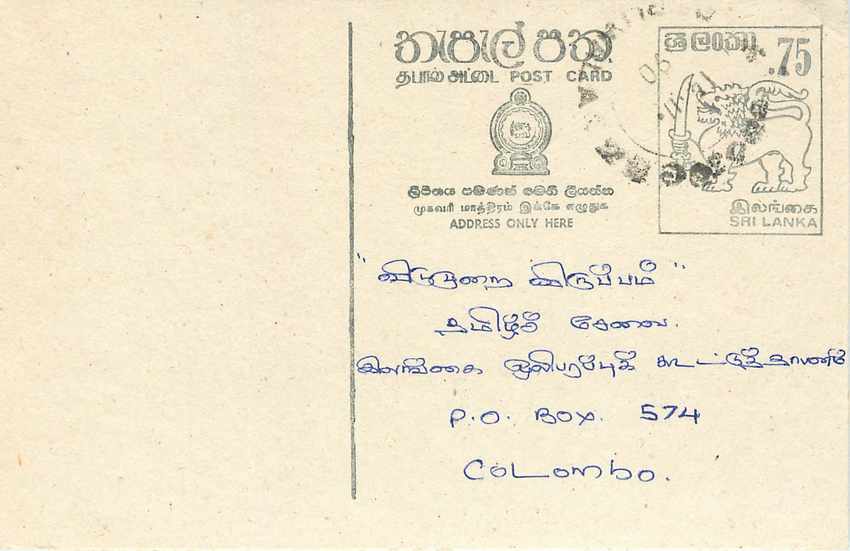 තැපැල් පත
தபால் அட்டை POST CARD
ලිපිනය පමණක් මෙහි ලියන්න
முகவரி மாத்திரம் இங்கே எழுதுக
ADDRESS ONLY HERE
ශ්‍රී ලංකා
.75
இலங்கை
SRI LANKA
" விடுமுறை விருப்பம் "
தமிழ்ச் சேவை.
இலங்கை ஒலிபரப்புக் கூட்டுத்தாபனம்
P.O. Box. 574
Colombo.